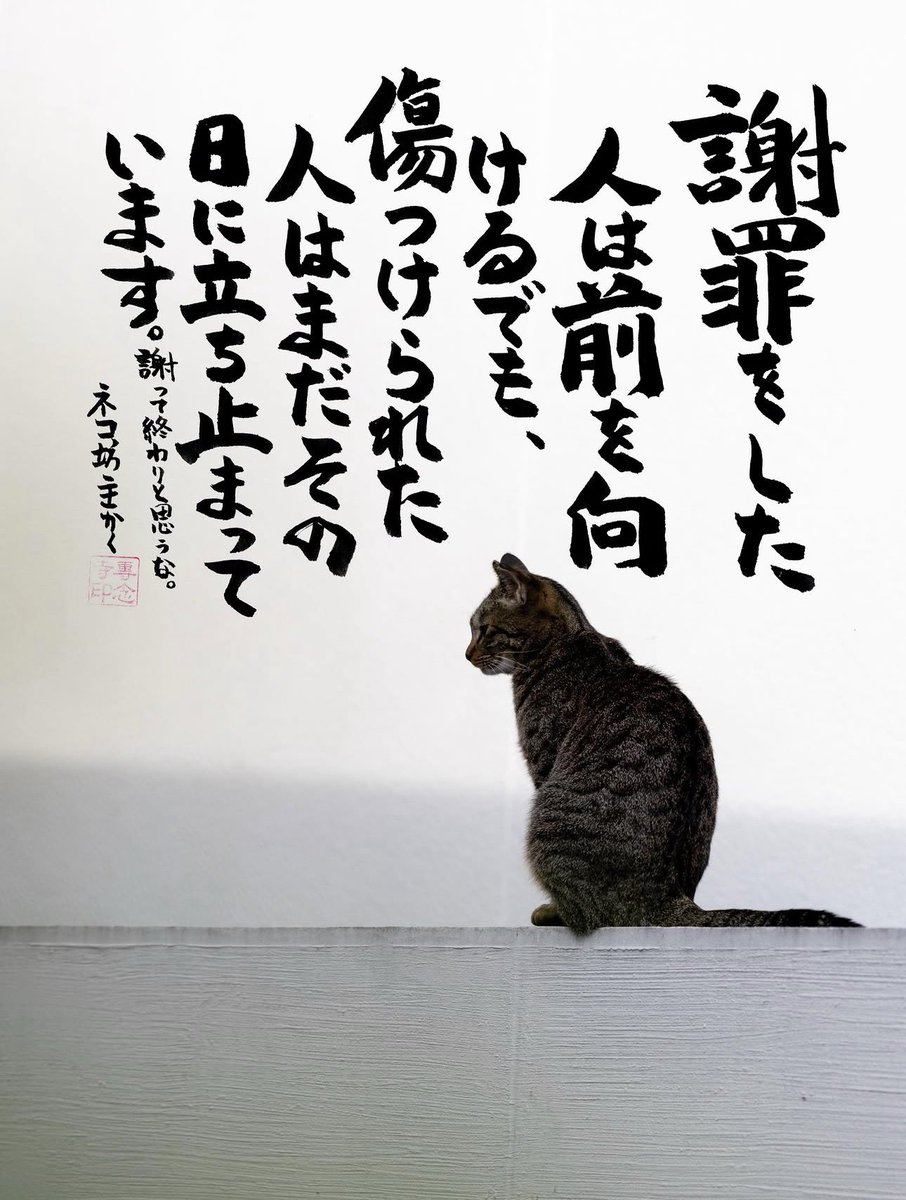 謝罪をした
人は前を向
けるでも、
傷つけられた
人はまだその
日に立ち止まって
います。
謝って終わりと思うな。
ネコ坊主かく
専念
寺印